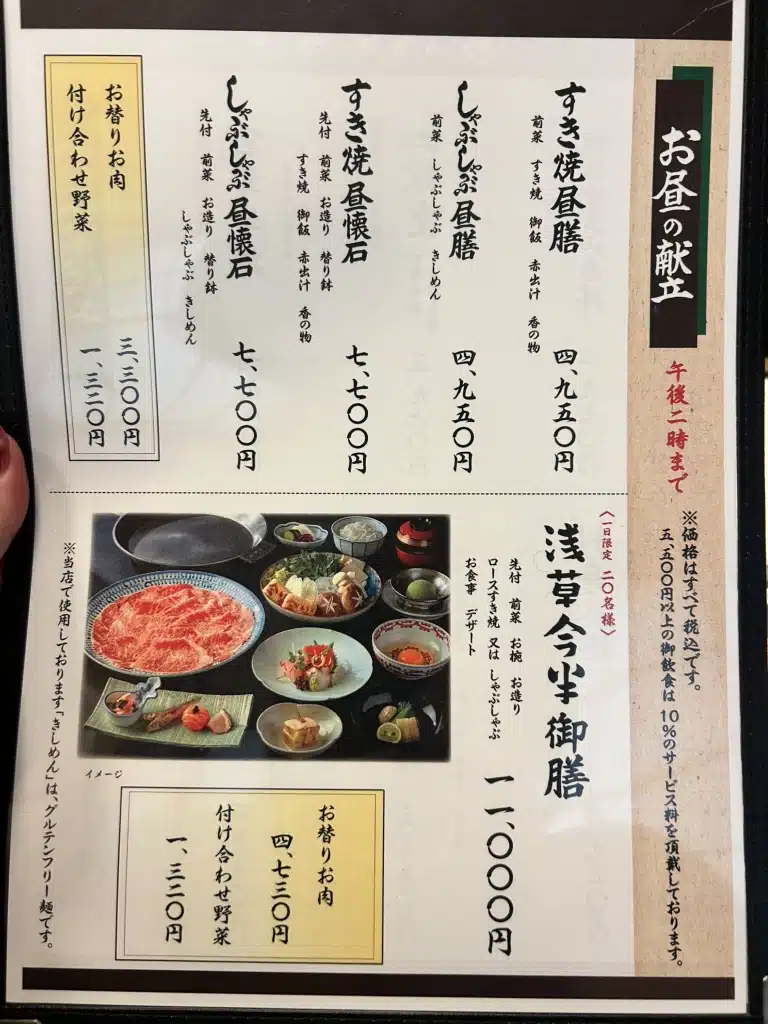 お昼の献立
午後二時まで
※価格はすべて税込です。
五、五〇〇円以上の御飲食は 10%のサービス料を頂戴しております。
すき焼昼膳
四、九五〇円
前菜 すき焼 御飯 赤出汁 香の物
しゃぶしゃぶ昼膳
四、九五〇円
前菜 しゃぶしゃぶ きしめん
すき焼昼懐石
七、七〇〇円
先付 前菜 お造り 替り鉢
すき焼 御飯 赤出汁 香の物
しゃぶしゃぶ昼懐石
七、七〇〇円
先付 前菜 お造り 替り鉢
しゃぶしゃぶ きしめん
お替りお肉
三、三〇〇円
付け合わせ野菜
一、三二〇円
〈一日限定 二〇名様〉
浅草今半御膳
一一、〇〇〇円
先付 前菜 お椀 お造り
ロースすき焼 又は しゃぶしゃぶ
お食事 デザート
イメージ
お替りお肉
四、七三〇円
付け合わせ野菜
一、三二〇円
※当店で使用しております「きしめん」は、グルテンフリー麺です。